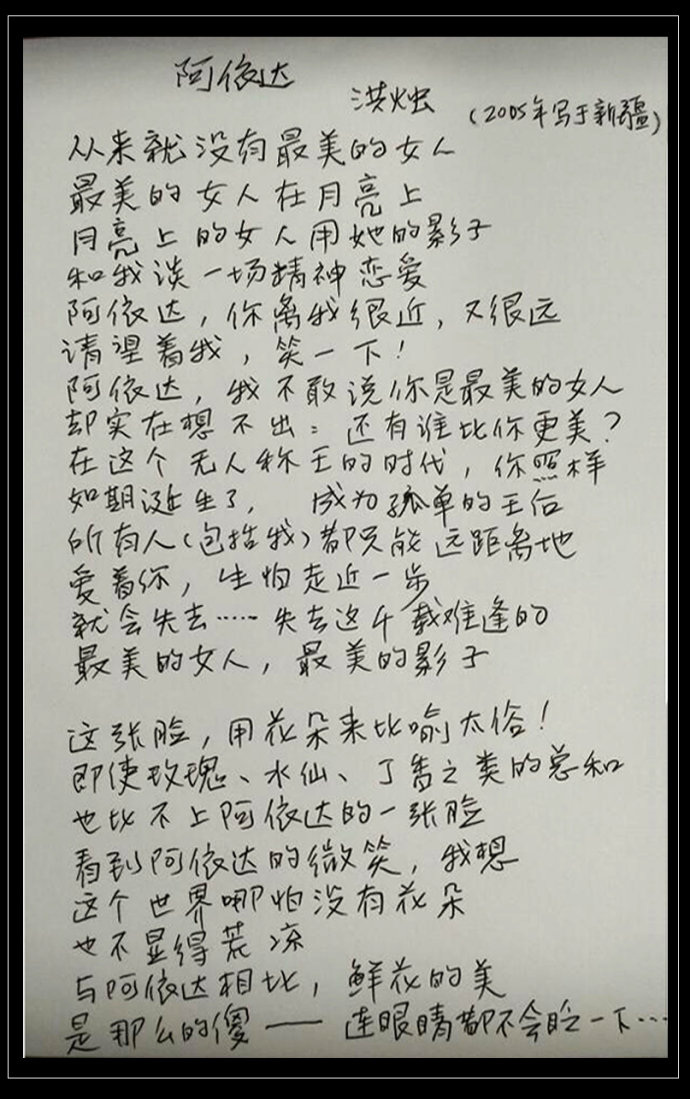 阿依达
洪烛
(2005年写于新疆)
从来就没有最美的女人
最美的女人在月亮上
月亮上的女人用她的影子
和我谈一场精神恋爱
阿依达，你离我很近，又很远
请望着我，笑一下！
阿依达，我不敢说你是最美的女人
却实在想不出：还有谁比你更美？
在这个无人称王的时代，你照样
如期诞生了，成为孤单的王后
所有人(包括我)都只能远距离地
爱着你，生怕走近一步
就会失去……失去这千载难逢的
最美的女人，最美的影子
这张脸，用花朵来比喻太俗！
即使玫瑰、水仙、丁香之类的总和
也比不上阿依达的一张脸
看到阿依达的微笑，我想
这个世界哪怕没有花朵
也不显得荒凉
与阿依达相比，鲜花的美
是那么的傻——连眼睛都不会眨一下…